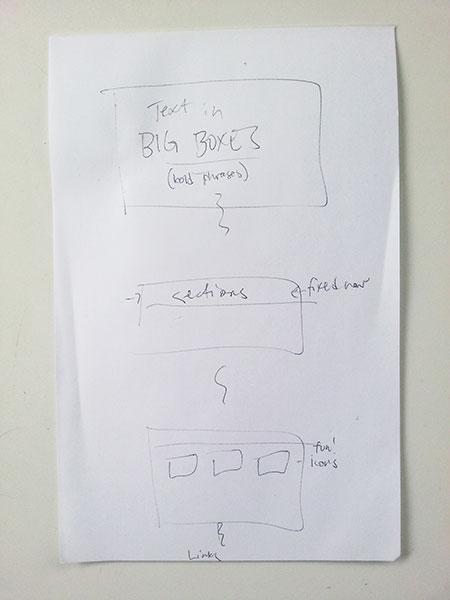 Text in
BIG BOXES
(bold phrases)
sections
fixed nav
fun!
icons
Links